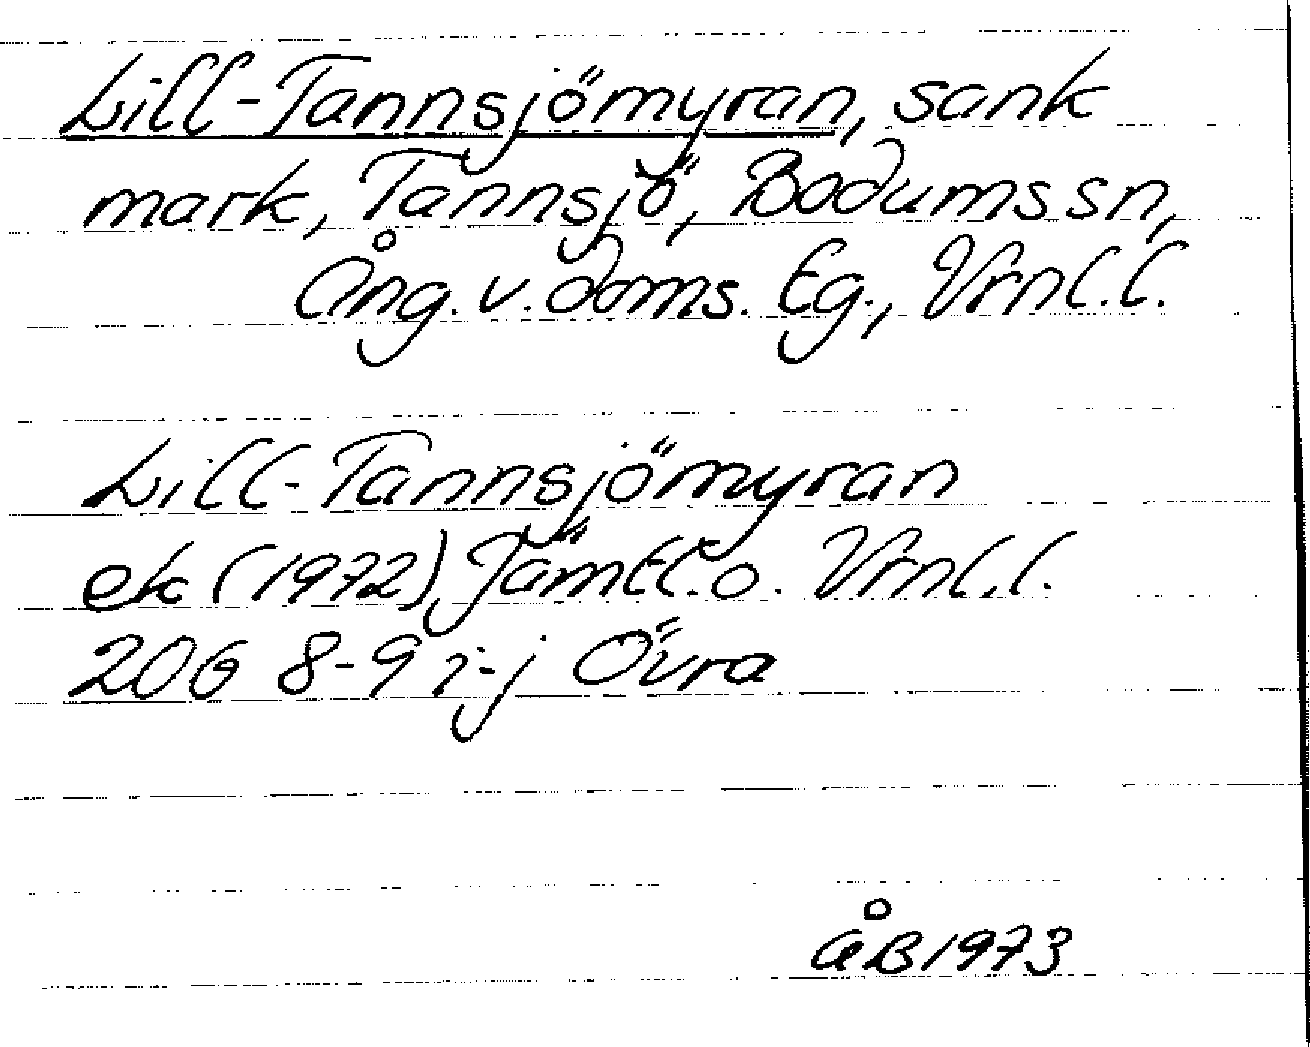 Lill-Tannsjömyran, sank
mark, Tannsjö, Bodums sn,
Ång. v. doms. tg., Vrnl. l.
Lill-Tannsjömyran
ek (1972), Jämtl. o. Vrnl. l.
20G 8-9 i-j Övra
ÅB 1973